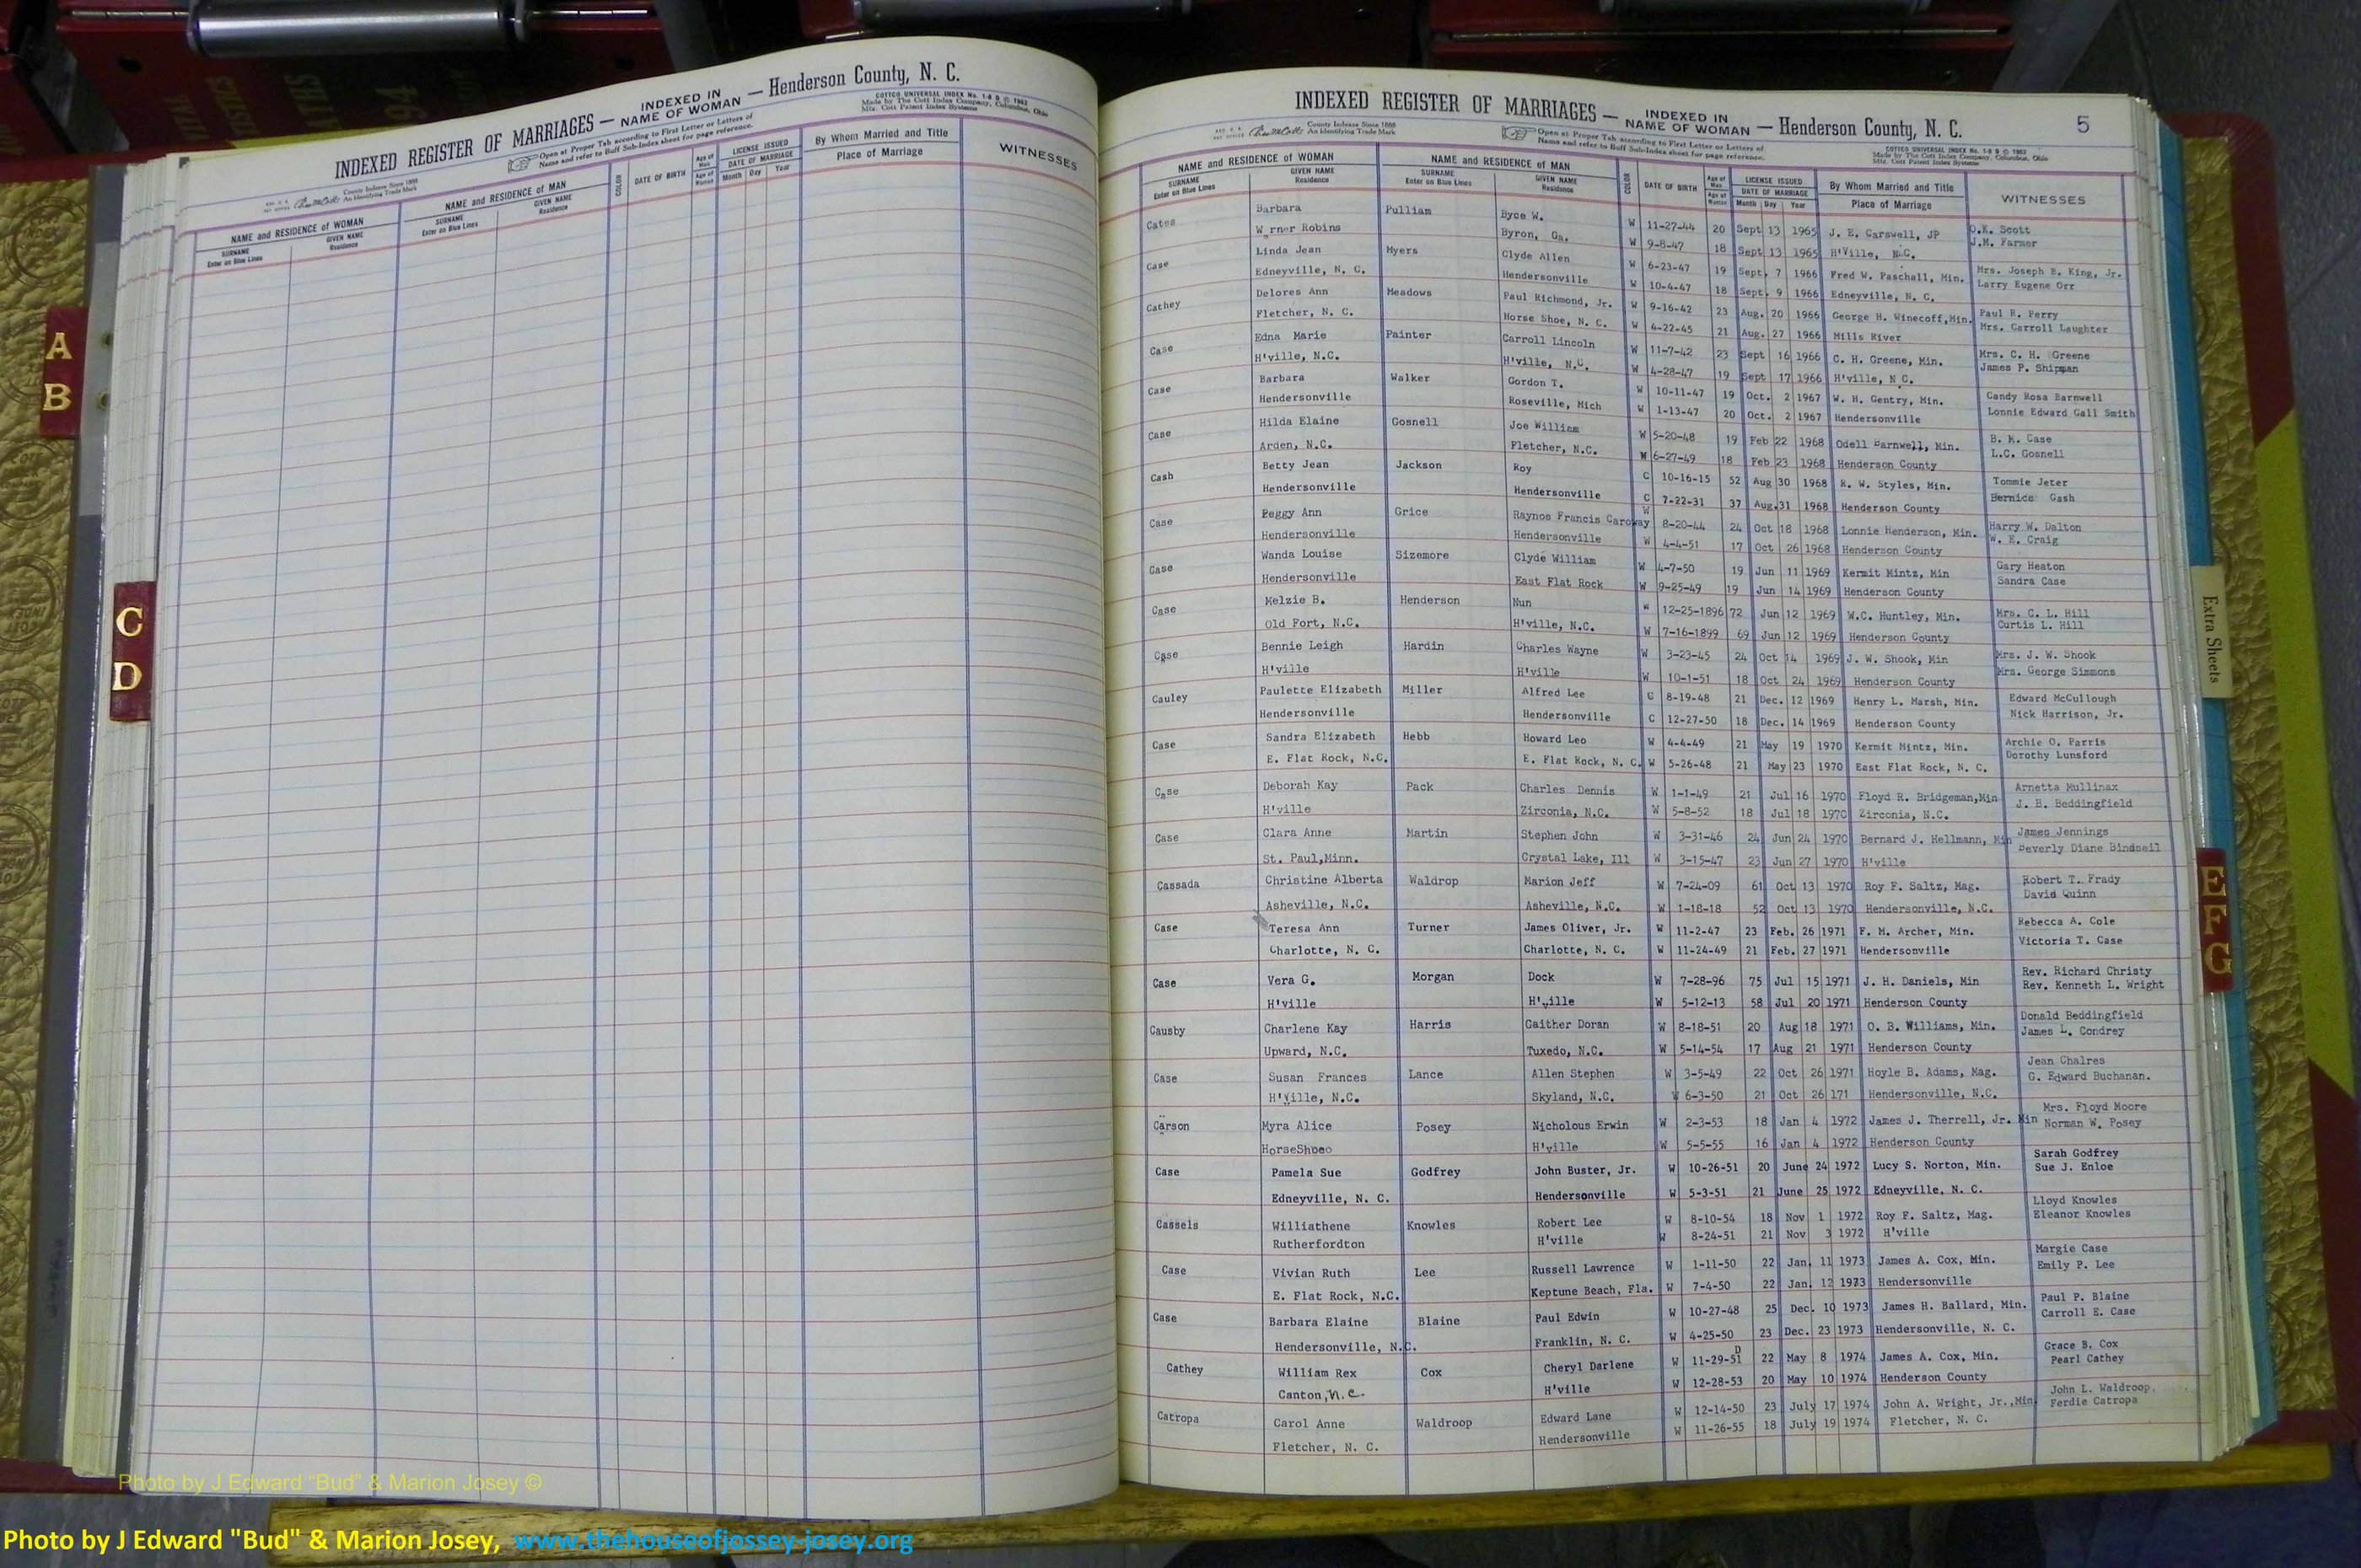 INDEXED REGISTER OF MARRIAGES — INDEXED IN NAME OF WOMAN — Henderson County, N. C.
COTTCO UNIVERSAL INDEX No. 1-8 D © 1962
Made by The Cott Index Company, Columbus, Ohio
Mfr. Cott Patent Index Systems
County Indexes Since 1888
An Identifying Trade Mark
Open at Proper Tab according to First Letter or Letters of
Name and refer to Buff Sub-Index sheet for page reference.
NAME and RESIDENCE OF WOMAN NAME and RESIDENCE OF MAN COLOR DATE OF BIRTH Age of Man Age of Woman LICENSE ISSUED DATE OF MARRIAGE By Whom Married and Title WITNESSES
SURNAME GIVEN NAME SURNAME GIVEN NAME Month Day Year Place of Marriage
Enter on Blue Lines Residence Enter on Blue Lines Residence
A
B
C
D
INDEXED REGISTER OF MARRIAGES — INDEXED IN NAME OF WOMAN — Henderson County, N. C. 5
County Indexes Since 1888
An Identifying Trade Mark
Open at Proper Tab according to First Letter or Letters of
Name and refer to Buff Sub-Index sheet for page reference.
COTTCO UNIVERSAL INDEX No. 1-8 D © 1962
Made by The Cott Index Company, Columbus, Ohio
Mfr. Cott Patent Index Systems
NAME and RESIDENCE OF WOMAN NAME and RESIDENCE OF MAN COLOR DATE OF BIRTH Age of Man Age of Woman LICENSE ISSUED DATE OF MARRIAGE By Whom Married and Title WITNESSES
SURNAME GIVEN NAME SURNAME GIVEN NAME Month Day Year Place of Marriage
Enter on Blue Lines Residence Enter on Blue Lines Residence
Cates Barbara Pulliam Byce W. W 11-27-44 20 Sept 13 1965 J. E. Carswell, JP O.K. Scott
W rner Robins Byron, Ga. W 9-8-47 18 Sept 13 1965 H'Ville, N.C. J.M. Farmer
Case Linda Jean Myers Clyde Allen W 6-23-47 19 Sept. 7 1966 Fred W. Paschall, Min. Mrs. Joseph B. King, Jr.
Edneyville, N. C. Hendersonville W 10-4-47 18 Sept. 9 1966 Edneyville, N. C. Larry Eugene Orr
Cathey Delores Ann Meadows Paul Richmond, Jr. W 9-16-42 23 Aug. 20 1966 George H. Winecoff,Min. Paul R. Perry
Fletcher, N. C. Horse Shoe, N. C. W 4-22-45 21 Aug. 27 1966 Mills River Mrs. Carroll Laughter
Case Edna Marie Painter Carroll Lincoln W 11-7-42 23 Sept 16 1966 C. H. Greene, Min. Mrs. C. H. Greene
H'ville, N.C. H'ville, N.C. W 4-28-47 19 Sept 17 1966 H'ville, N C. James P. Shipman
Case Barbara Walker Gordon T. W 10-11-47 19 Oct. 2 1967 W. H. Gentry, Min. Candy Rosa Barnwell
Hendersonville Roseville, Mich W 1-13-47 20 Oct. 2 1967 Hendersonville Lonnie Edward Gall Smith
Case Hilda Elaine Gosnell Joe William W 5-20-48 19 Feb 22 1968 Odell Barnwell, Min. B. M. Case
Arden, N.C. Fletcher, N.C. W 6-27-49 18 Feb 23 1968 Henderson County L.C. Gosnell
Cash Betty Jean Jackson Roy C 10-16-15 52 Aug 30 1968 R. W. Styles, Min. Tommie Jeter
Hendersonville Hendersonville C 7-22-31 37 Aug.31 1968 Henderson County Bernice Gash
Case Peggy Ann Grice Raynos Francis Caroway W 8-20-44 24 Oct 18 1968 Lonnie Henderson, Min. Harry W. Dalton
Hendersonville Hendersonville W 4-4-51 17 Oct 26 1968 Henderson County W. E. Craig
Case Wanda Louise Sizemore Clyde William W 4-7-50 19 Jun 11 1969 Kermit Mintz, Min Gary Heaton
Hendersonville East Flat Rock W 9-25-49 19 Jun 14 1969 Henderson County Sandra Case
Case Melzie B. Henderson Nun W 12-25-1896 72 Jun 12 1969 W.C. Huntley, Min. Mrs. C. L. Hill
Old Fort, N.C. H'ville, N.C. W 7-16-1899 69 Jun 12 1969 Henderson County Curtis L. Hill
Case Bennie Leigh Hardin Charles Wayne W 3-23-45 24 Oct 14 1969 J. W. Shook, Min Mrs. J. W. Shook
H'ville H'ville W 10-1-51 18 Oct 24 1969 Henderson County Mrs. George Simmons
Cauley Paulette Elizabeth Miller Alfred Lee C 8-19-48 21 Dec. 12 1969 Henry L. Marsh, Min. Edward McCullough
Hendersonville Hendersonville C 12-27-50 18 Dec. 14 1969 Henderson County Nick Harrison, Jr.
Case Sandra Elizabeth Hebb Howard Leo W 4-4-49 21 May 19 1970 Kermit Mintz, Min. Archie O. Parris
E. Flat Rock, N.C. E. Flat Rock, N. C. W 5-26-48 21 May 23 1970 East Flat Rock, N. C. Dorothy Lunsford
Case Deborah Kay Pack Charles Dennis W 1-1-49 21 Jul 16 1970 Floyd R. Bridgeman,Min Arnetta Mullinax
H'ville Zirconia, N.C. W 5-8-52 18 Jul 18 1970 Zirconia, N.C. J. B. Beddingfield
Case Clara Anne Martin Stephen John W 3-31-46 24 Jun 24 1970 Bernard J. Hellmann, Min James Jennings
St. Paul,Minn. Crystal Lake, Ill W 3-15-47 23 Jun 27 1970 H'ville Beverly Diane Bindseil
Cassada Christine Alberta Waldrop Marion Jeff W 7-24-09 61 Oct 13 1970 Roy F. Saltz, Mag. Robert T. Frady
Asheville, N.C. Asheville, N.C. W 1-18-18 52 Oct 13 1970 Hendersonville, N.C. David Quinn
Case Teresa Ann Turner James Oliver, Jr. W 11-2-47 23 Feb. 26 1971 F. M. Archer, Min. Rebecca A. Cole
Charlotte, N. C. Charlotte, N. C. W 11-24-49 21 Feb. 27 1971 Hendersonville Victoria T. Case
Case Vera G. Morgan Dock W 7-28-96 75 Jul 15 1971 J. H. Daniels, Min Rev. Richard Christy
H'ville H'ville W 5-12-13 58 Jul 20 1971 Henderson County Rev. Kenneth L. Wright
Causby Charlene Kay Harris Gaither Doran W 8-18-51 20 Aug 18 1971 O. B. Williams, Min. Donald Beddingfield
Upward, N.C. Tuxedo, N.C. W 5-14-54 17 Aug 21 1971 Henderson County James L. Condrey
Case Susan Frances Lance Allen Stephen W 3-5-49 22 Oct 26 1971 Hoyle B. Adams, Mag. Jean Chalres
H'Ville, N.C. Skyland, N.C. W 6-3-50 21 Oct 26 171 Hendersonville, N.C. G. Edward Buchanan.
Carson Myra Alice Posey Nicholous Erwin W 2-3-53 18 Jan 4 1972 James J. Therrell, Jr. Min Mrs. Floyd Moore
HorseShoeo H'ville W 5-5-55 16 Jan 4 1972 Henderson County Norman W. Posey
Case Pamela Sue Godfrey John Buster, Jr. W 10-26-51 20 June 24 1972 Lucy S. Norton, Min. Sarah Godfrey
Edneyville, N. C. Hendersonville W 5-3-51 21 June 25 1972 Edneyville, N. C. Sue J. Enloe
Cassels Williathene Knowles Robert Lee W 8-10-54 18 Nov 1 1972 Roy F. Saltz, Mag. Lloyd Knowles
Rutherfordton H'ville W 8-24-51 21 Nov 3 1972 H'ville Eleanor Knowles
Case Vivian Ruth Lee Russell Lawrence W 1-11-50 22 Jan. 11 1973 James A. Cox, Min. Margie Case
E. Flat Rock, N.C. Keptune Beach, Fla. W 7-4-50 22 Jan. 12 1973 Hendersonville Emily P. Lee
Case Barbara Elaine Blaine Paul Edwin W 10-27-48 25 Dec. 10 1973 James H. Ballard, Min. Paul P. Blaine
Hendersonville, N.C. Franklin, N. C. W 4-25-50 23 Dec. 23 1973 Hendersonville, N. C. Carroll E. Case
Cathey William Rex Cox Cheryl Darlene W 11-29-51 D 22 May 8 1974 James A. Cox, Min. Grace B. Cox
Canton, N.C. H'ville W 12-28-53 20 May 10 1974 Henderson County Pearl Cathey
Catropa Carol Anne Waldroop Edward Lane W 12-14-50 23 July 17 1974 John A. Wright, Jr.,Min John L. Waldroop.
Fletcher, N. C. Hendersonville W 11-26-55 18 July 19 1974 Fletcher, N. C. Ferdie Catropa
Extra Sheets
E
F
G
Photo by J Edward "Bud" & Marion Josey ©
Photo by J Edward "Bud" & Marion Josey, www.thehouseofjossey-josey.org